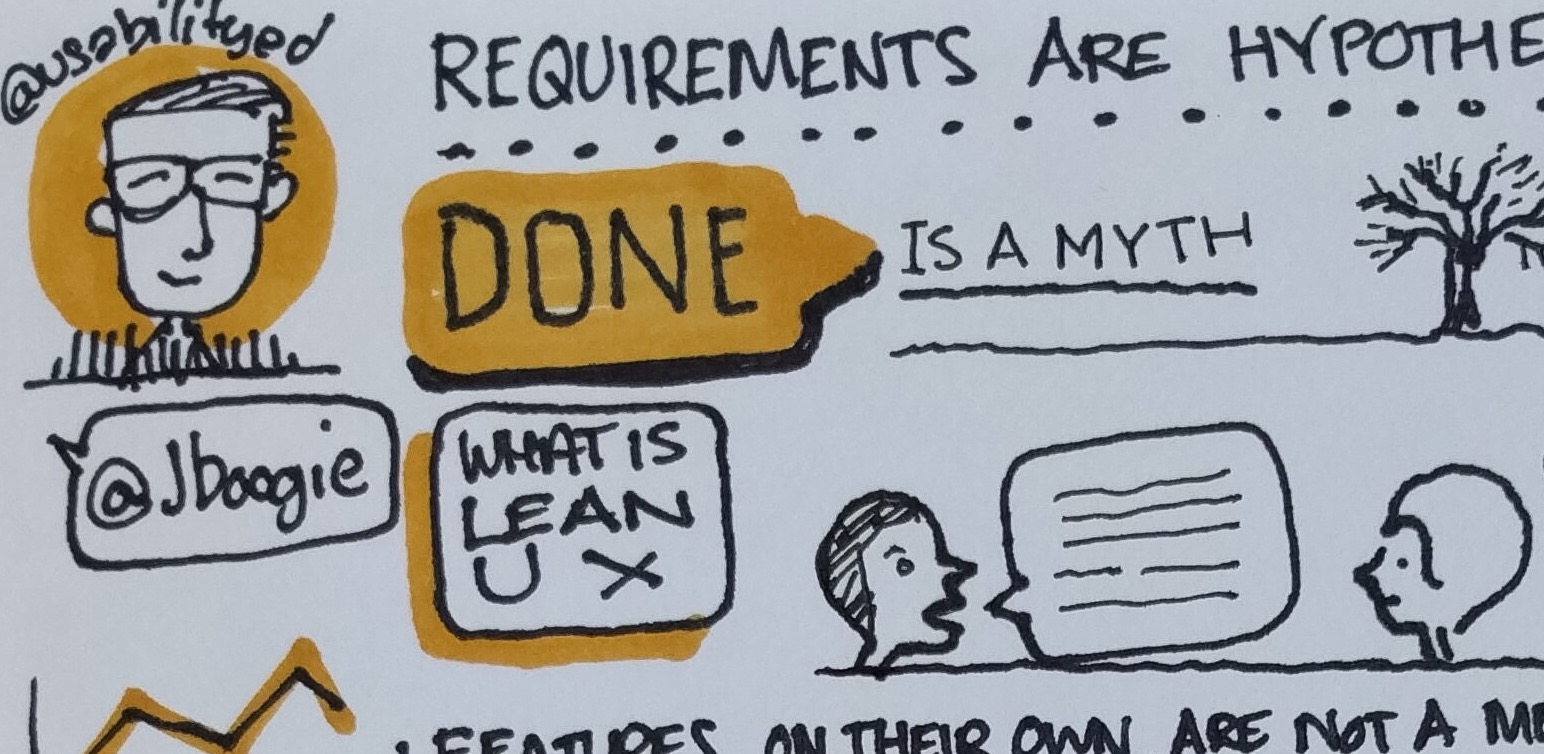 @usabilityed
REQUIREMENTS ARE HYPOTHE
DONE
IS A MYTH
@Jboogie
WHAT IS
LEAN
UX
• FEATURES ON THEIR OWN ARE NOT A